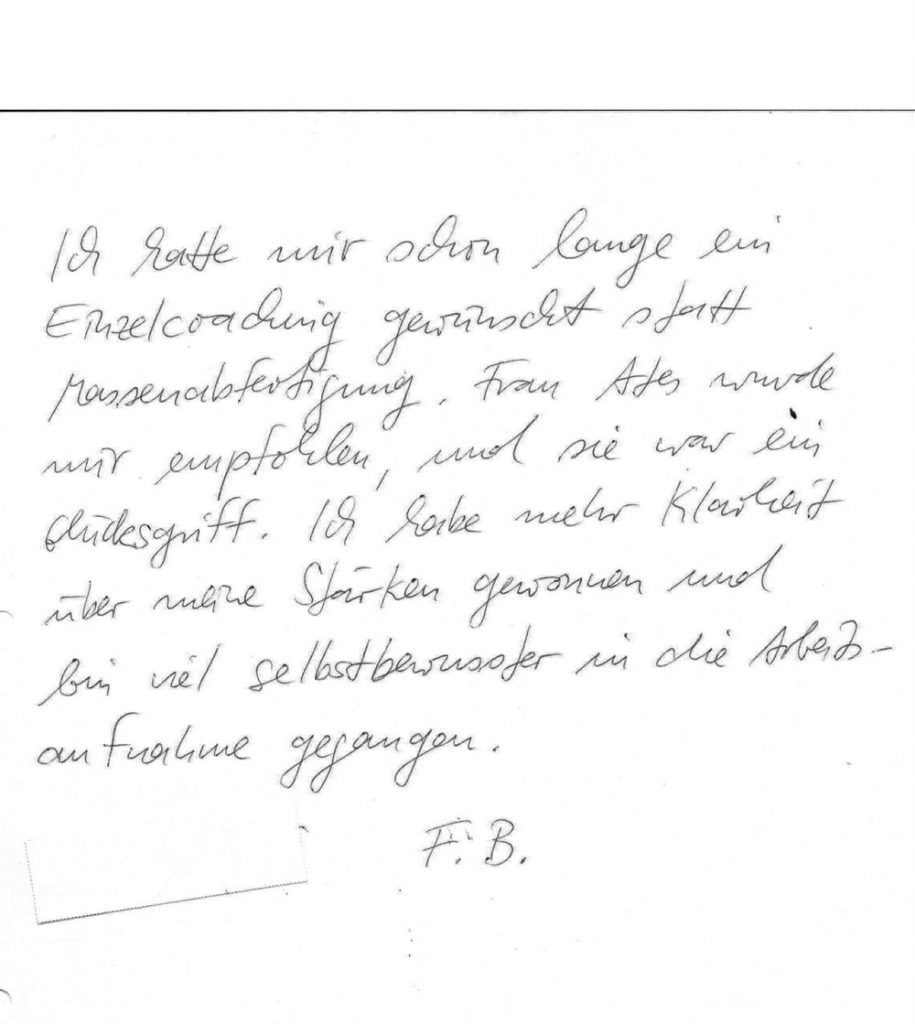 Ich hatte mir schon lange ein
Einzelcoaching gewünscht statt
Massenabfertigung. Frau Ates wurde
mir empfohlen, und sie war ein
Glücksgriff. Ich habe mehr Klarheit
über meine Stärken gewonnen und
bin viel selbstbewusster in die Arbeits-
aufnahme gegangen.
F. B.